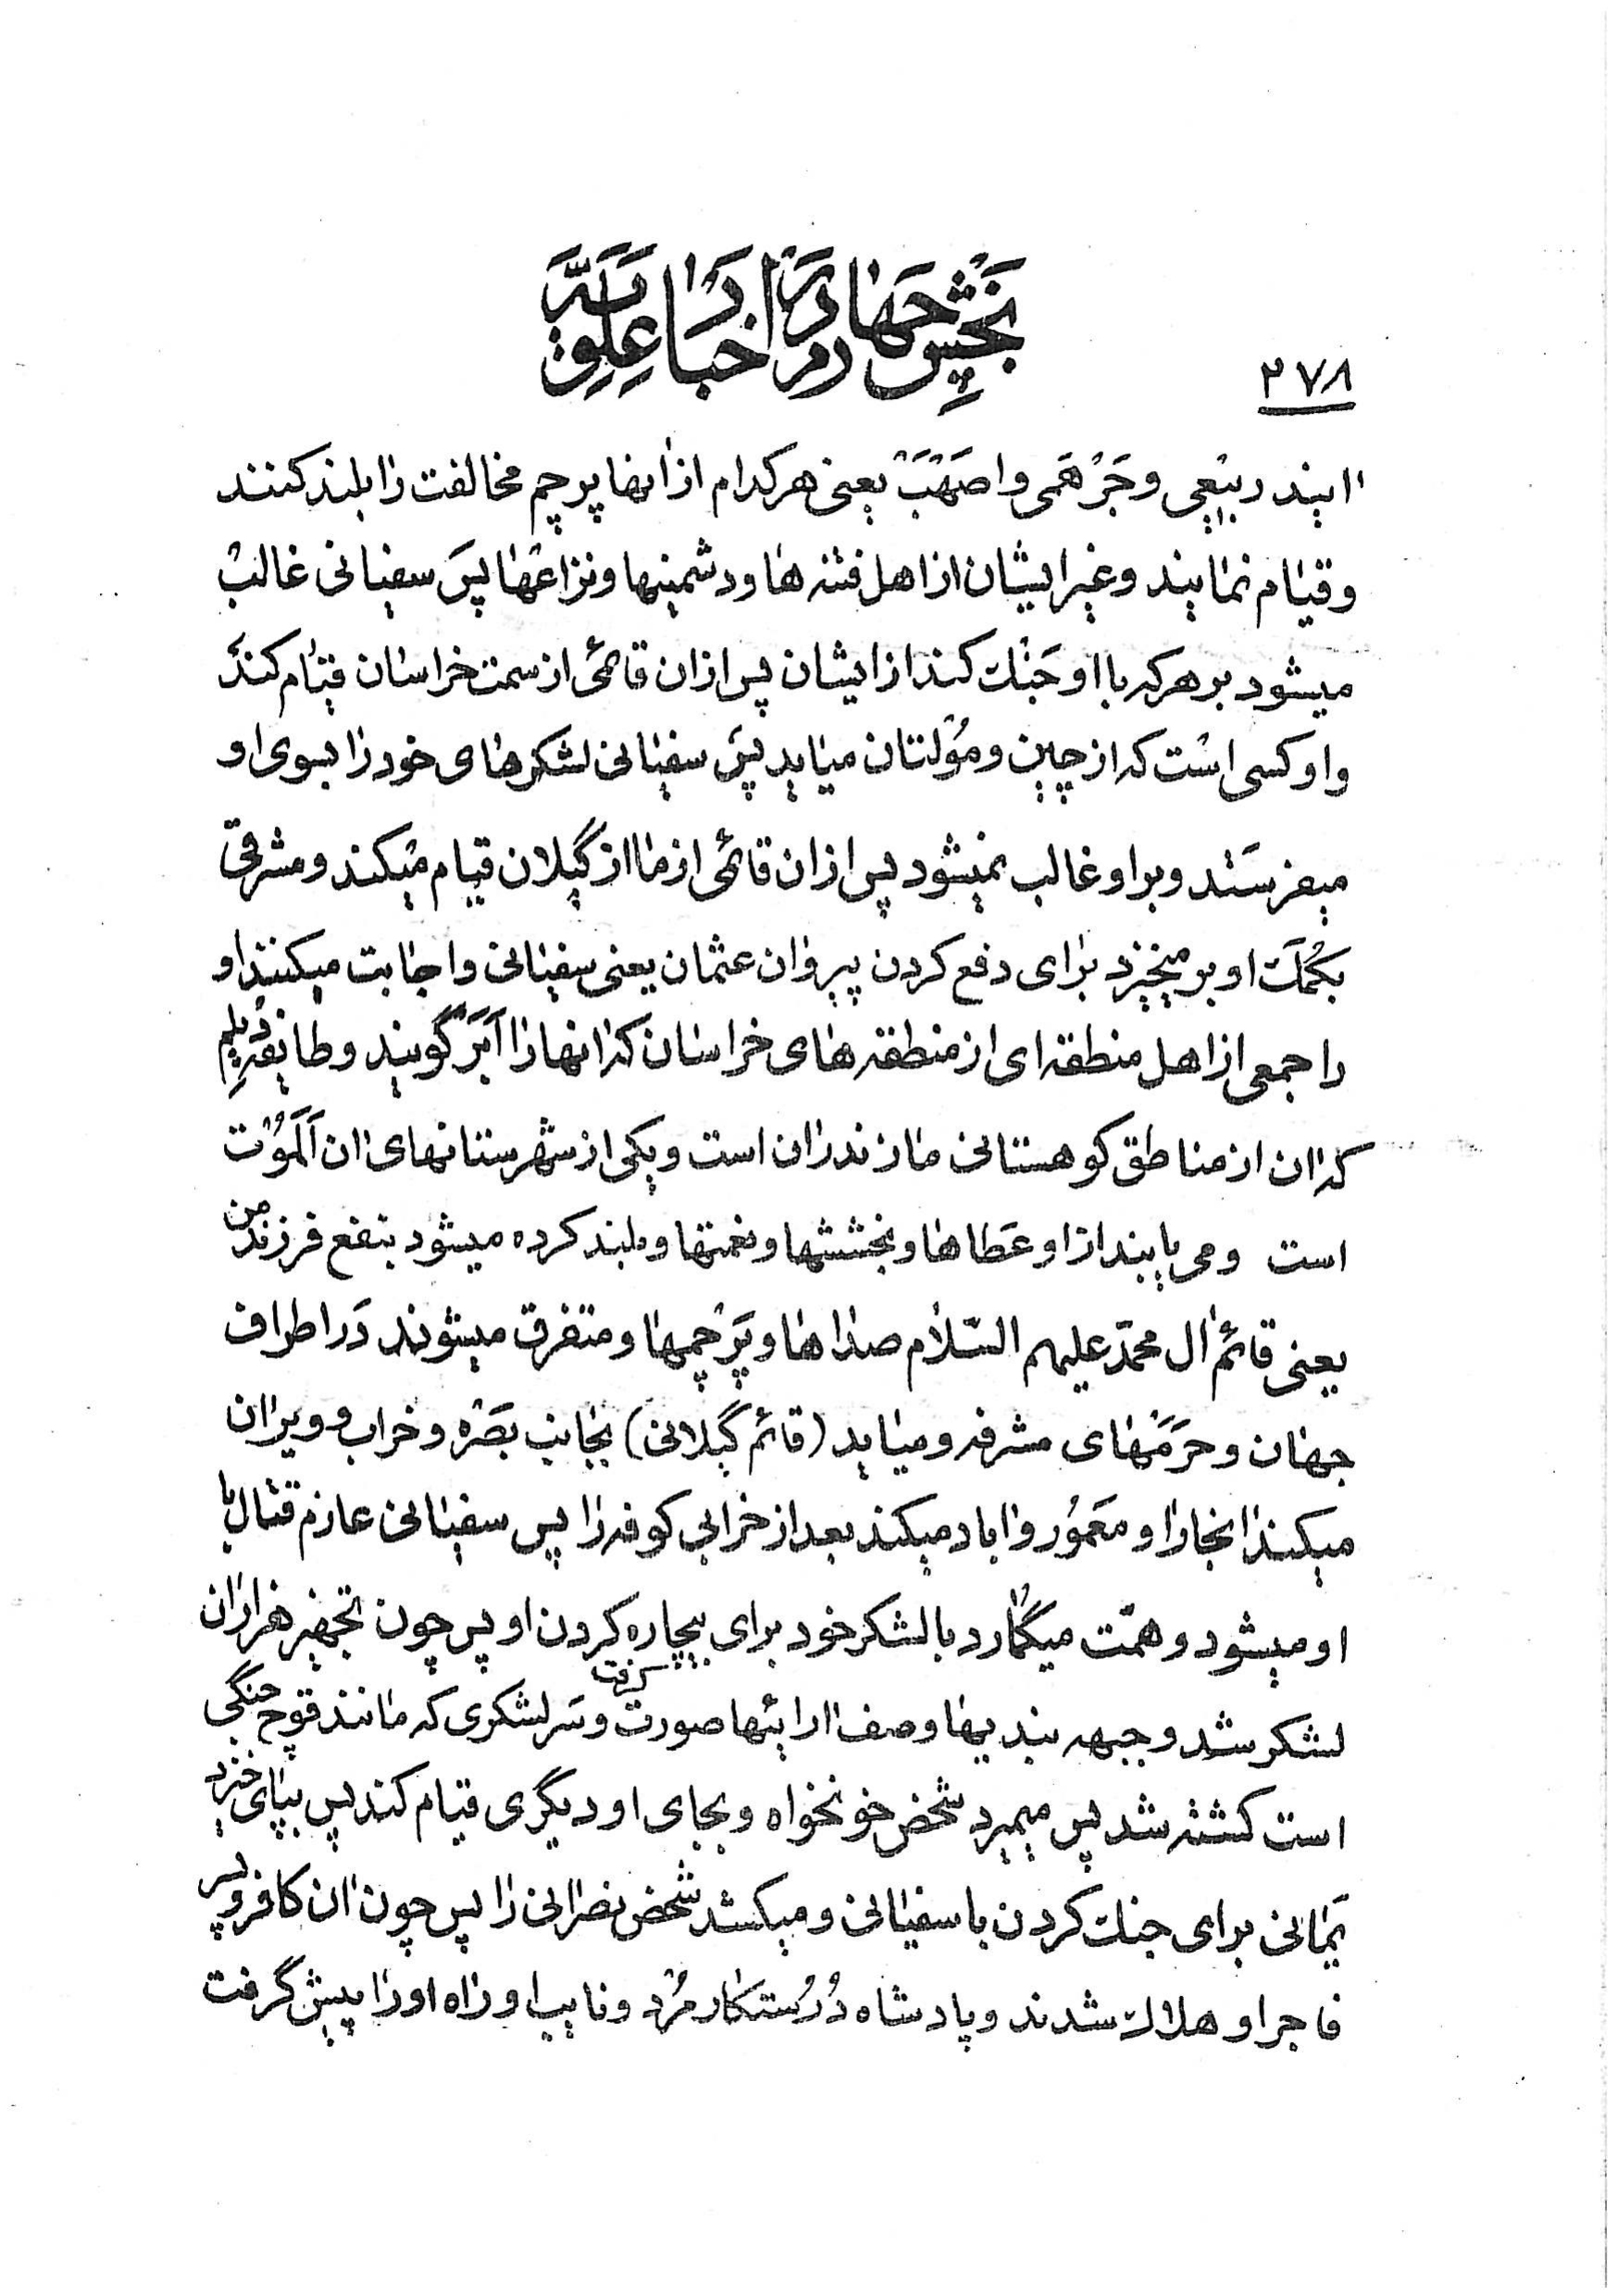 بخش چهارم در اخبار علویه
۲۷۸
آیند ربیعی و جَرْهَمی و اصَهْبَ یعنی هر کدام از آنها پرچم مخالفت را بلند کنند
و قیام نمایند و غیر ایشان از اهل فتنه ها و دشمنیها و نزاعها پس سفیانی غالب
میشود بر هر که با او جَنْک کند از ایشان پس از ان قائمی از سمت خراسان قیام کند
و او کسی است که از چین و مُوْلتان میاید پس سفیانی لشکرهای خود را بسوی او
میفرستد و بر او غالب نمیشود پس از ان قائمی از ما از گیلان قیام میکند و مشرقی
بکُمَک او برمیخیزد برای دفع کردن پیروان عثمان یعنی سفیانی و اجابت میکنند او
را جمعی از اهل منطقه ای از منطقه های خراسان که انها را آبَرْ گویند و طایفهِ دَیلم
که ان از مناطق کوهستانی مازندران است و یکی از شهرستانهای ان اَلَمُوْت
است و می یابند از او عَطاها و بخششها و نعمتها و بلند کرده میشود بنفع فرزند من
یعنی قائم ال محمّد علیهم السّلام صداها و پَرْچمها و متفرق میشوند دَر اطراف
جهان و حَرَمهای مشرفه و میاید (قائم گیلانی) بجانب بَصْره و خراب و ویران
میکند انجا را و مَعمُور و اباد میکند بعد از خرابی کوفه را پس سفیانی عازم قتال با
او میشود و همّت میگمارد با لشکر خود برای بیچاره کردن او پس چون تجهیز هزاران
لشکر شد و جبهه بندیها و صف ارائیها صورت گرفت و سَر لشکری که مانند قوچ جنگی
است کشته شد پس میمیرد شخص خونخواه و بجای او دیگری قیام کند پس بپای خیزد
یَمانی برای جنک کردن با سفیانی و میکشد شخص نصرانی را پس چون ان کافر و پسر
فاجر او هلاک شدند و پادشاه دُرُستکار مُرْد و نایب او راه او را پیش گرفت